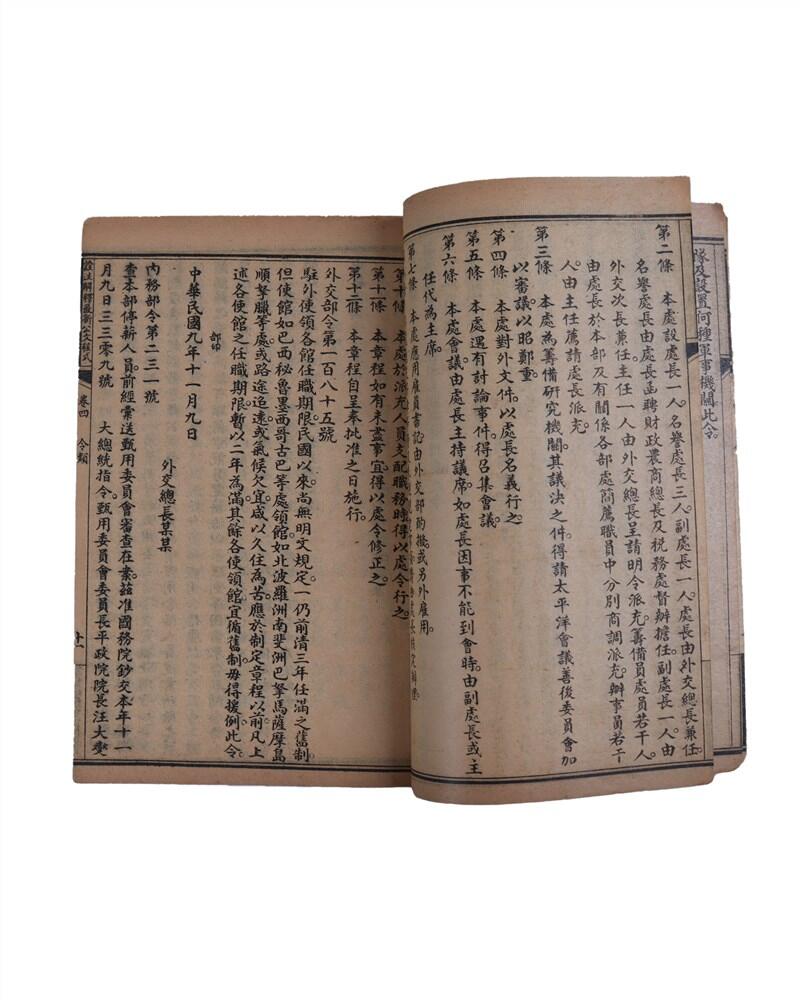 隊及設置何種軍事機關此令。
第二條　本處設處長一人。名譽處長三人。副處長一人。處長由外交總長兼任。
名譽處長由處長函聘財政農商總長及税務處督辦擔任。副處長一人。由
外交次長兼任。主任一人由外交總長呈請明令派充。籌備員處員若干人。
由處長於本部及有關係各部處簡薦職員中分別商調派充。辦事員若干
人。由主任薦請處長派充。
第三條　本處為籌備研究機關。其議決之件得請太平洋會議善後委員會加
以審議以昭鄭重。
第四條　本處對外文件。以處長名義行之。
第五條　本處遇有討論事件得召集會議。
第六條　本處會議由處長主持議席。如處長因事不能到會時。由副處長或主
任代為主席。
第七條　本處應用雇員書記由外交部酌撥或另外雇用。
第十條　本處於派充人員支配職務時得以處令行之。
第十一條　本章程如有未盡事宜。得以處令修正之。
第十二條　本章程自呈奉批准之日施行。
外交部令第一百八十五號
駐外使領各館任職期限。民國以來。尚無明文規定。一仍前清三年任滿之舊制。
但使館如巴西秘魯墨西哥古巴等處。領館如北波羅洲南斐洲巴拏馬薩摩島
順拏臘等處。或路途迢遠。或氣候欠宜。咸以久住為苦。應於制定章程以前。凡上
述各使館之任職期限。暫以二年為滿。其餘各使領館宜循舊制。毋得援例。此令。
部印
中華民國九年十一月九日
外交總長某某
內務部令第二三一號
查本部停薪人員。前經彙送甄用委員會審查在案。茲准國務院鈔交本年十一
月九日三三零九號　大總統指令。甄用委員會委員長平政院院長汪大燮
註解釋最新公文程式　卷四　令類　十一